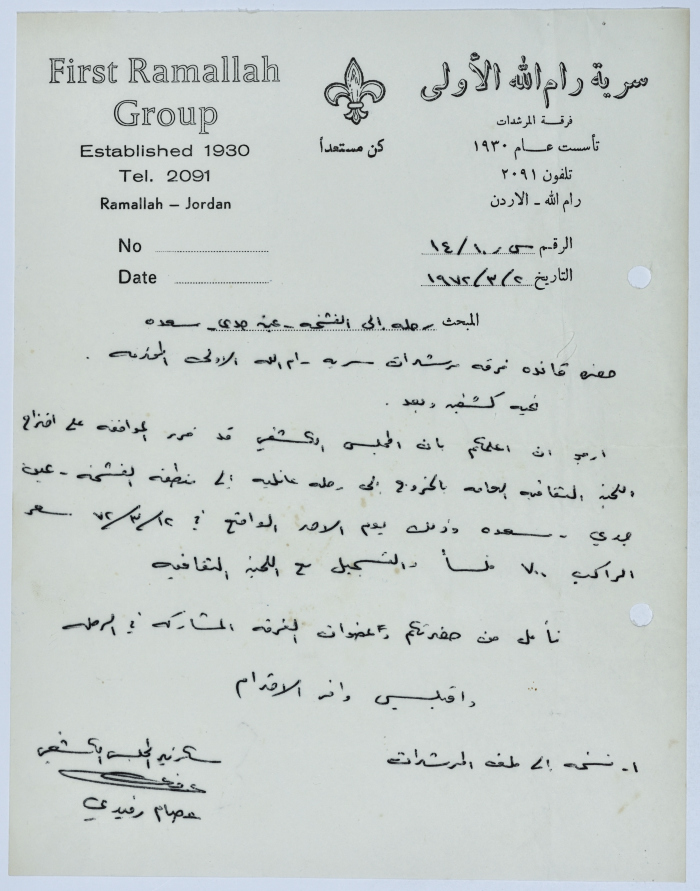 First Ramallah
Group
Established 1930
Tel. 2091
Ramallah – Jordan
كن مستعداً
سرية رام الله الأولى
فرقة المرشدات
تأسست عام ١٩٣٠
تلفون ٢٠٩١
رام الله - الاردن
No
Date
الرقم س ر ١٠ / ١٤
التاريخ ٢ / ٣ / ١٩٧٢
المبحث رحله الى الفشخه - عين جدي - سعده
حضرة قائده فرقه مرشدات سريه رام الله الاولى المحترمه .
تحيه كشفيه وبعد .
ارجو ان اعلمكم بان المجلس الكشفي قد قرر الموافقه على اقتراح
اللجنه الثقافيه العامه بالخروج الى رحله عائليه الى منطقه الفشخه - عين
جدي - سعده وذلك يوم الاحد الواقع في ١٢ / ٣ / ٧٢ سعر
الراكب ٧٠٠ فلساً والتسجيل مع اللجنه الثقافيه
نأمل من حضرتكم وعضوات الفرقه المشاركه في الرحله
واقبلي وافر الاحترام
١- نسخه الى ملف المرشدات
سكرتير المجلس الكشفي
عصام رفيدي